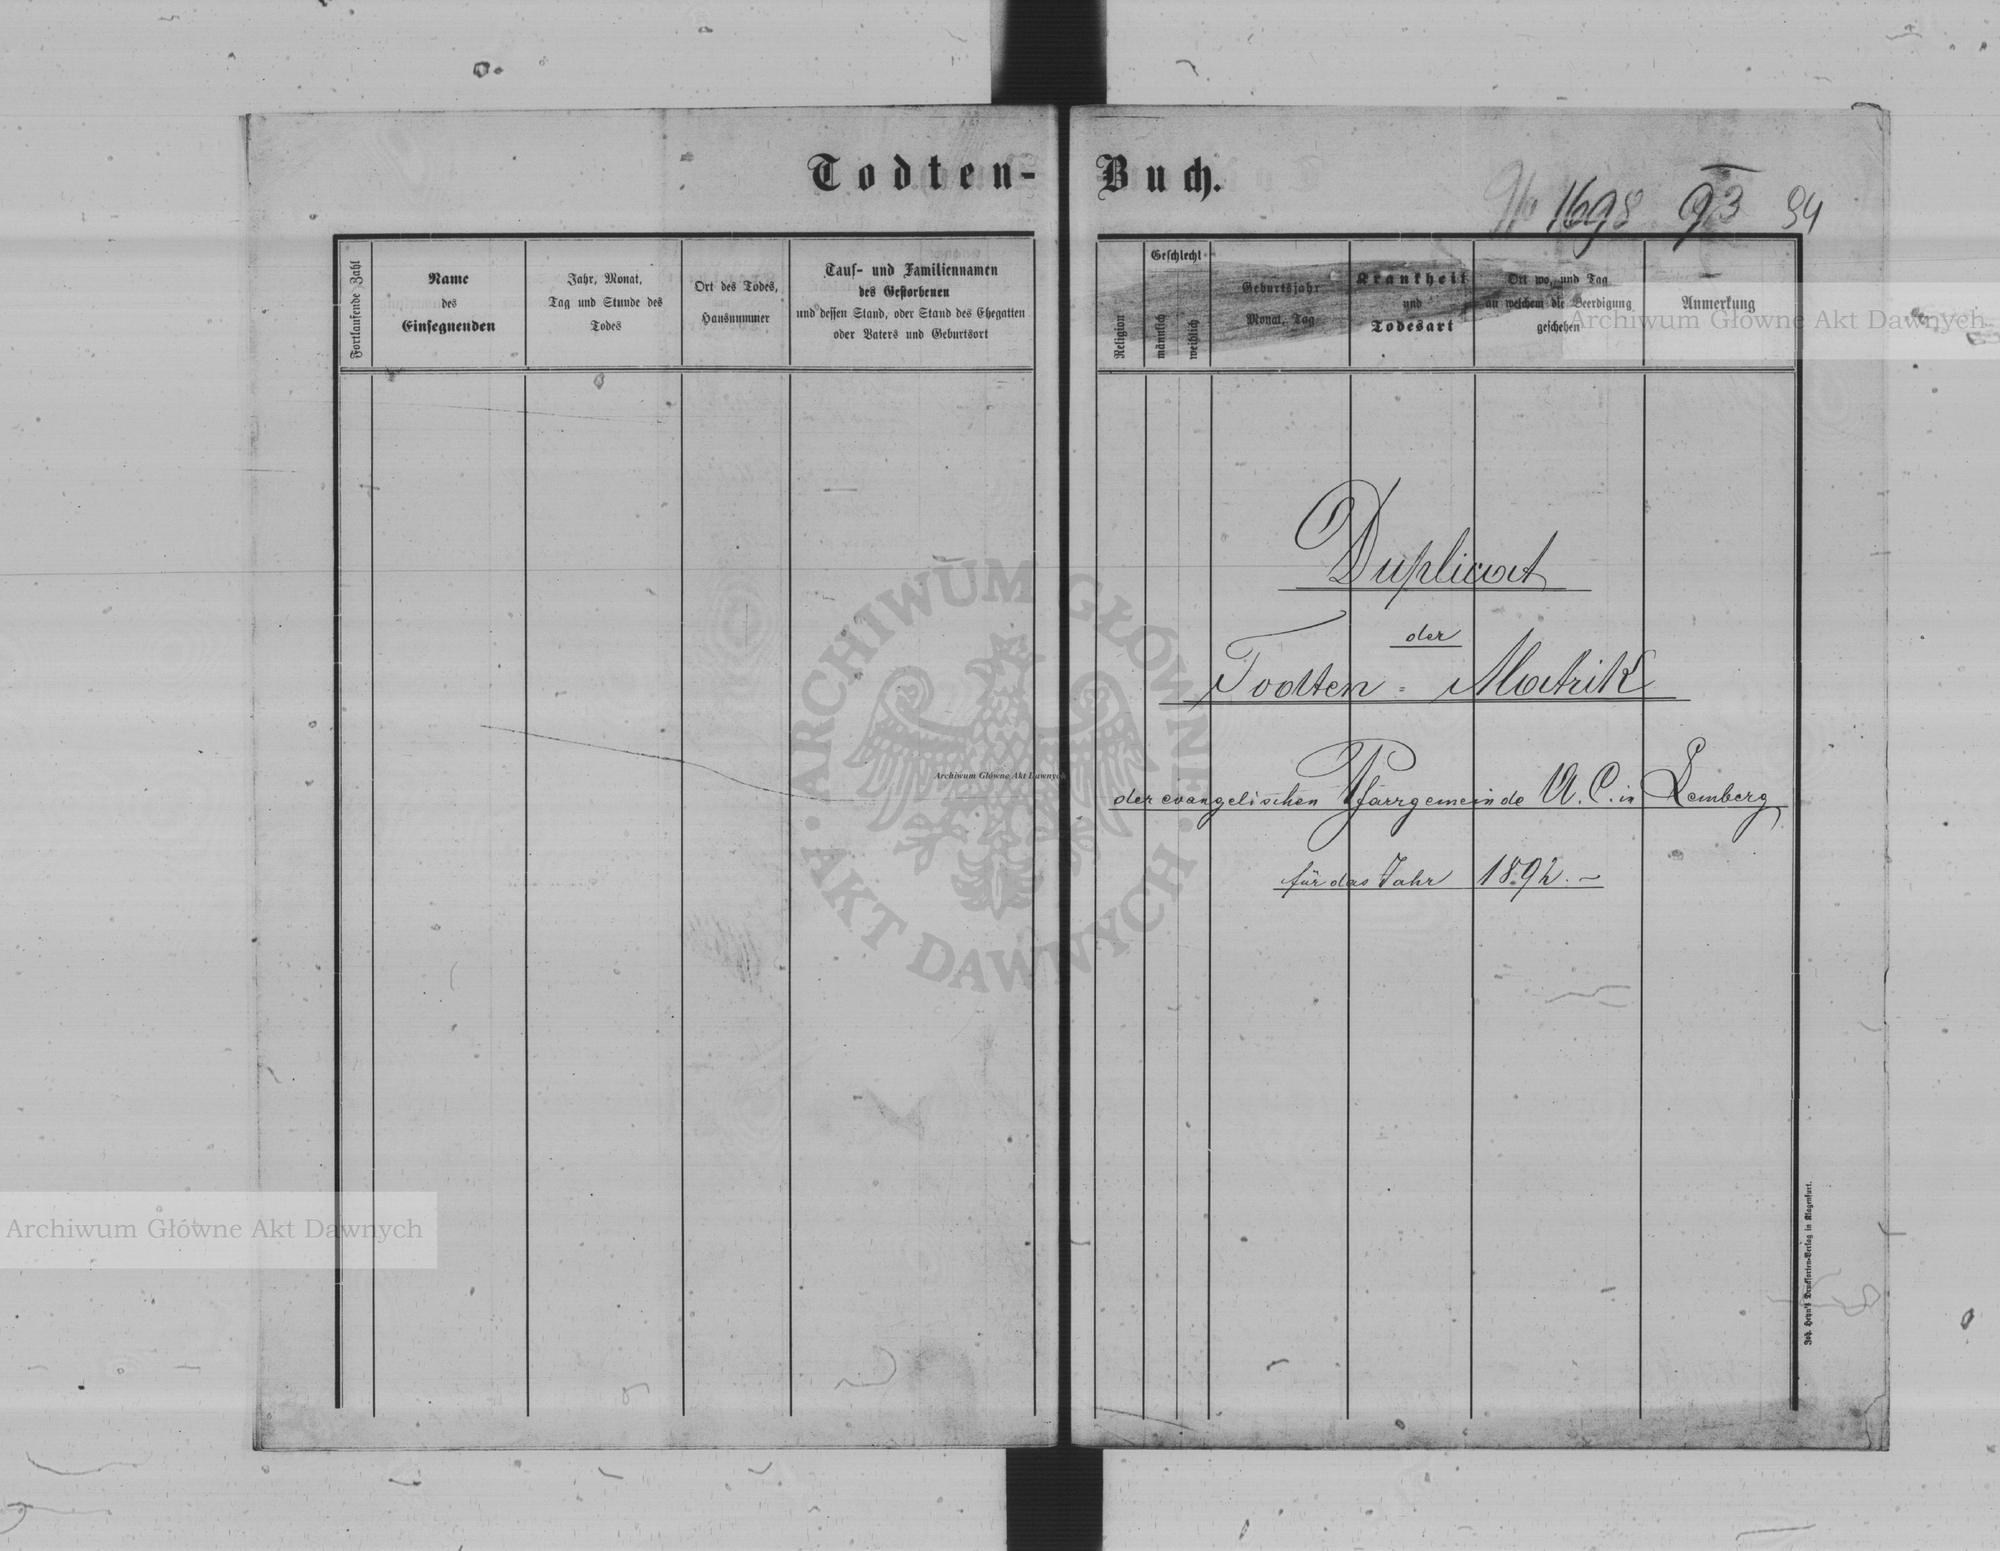 Todten-Buch.
1698 93 94
Fortlaufende Zahl
Name
des
Einsegnenden
Jahr, Monat,
Tag und Stunde des
Todes
Ort des Todes,
Hausnummer
Tauf- und Familiennamen
des Gestorbenen
und dessen Stand, oder Stand des Ehegatten
oder Vaters und Geburtsort
Religion
Geschlecht
männlich
weiblich
Geburtsjahr
Monat, Tag
Krankheit
und
Todesart
Ort wo, und Tag
an welchem die Beerdigung
geschehen
Anmerkung
Archiwum Główne Akt Dawnych
Duplicat
der
Todten-Matrik
der evangelischen Pfarrgemeinde A. C. in Lemberg
für das Jahr 1892.-
ARCHIWUM GŁÓWNE
AKT DAWNYCH
Archiwum Główne Akt Dawnych
Archiwum Główne Akt Dawnych
Joh. Heyn's Drucksorten-Verlag in Klagenfurt.